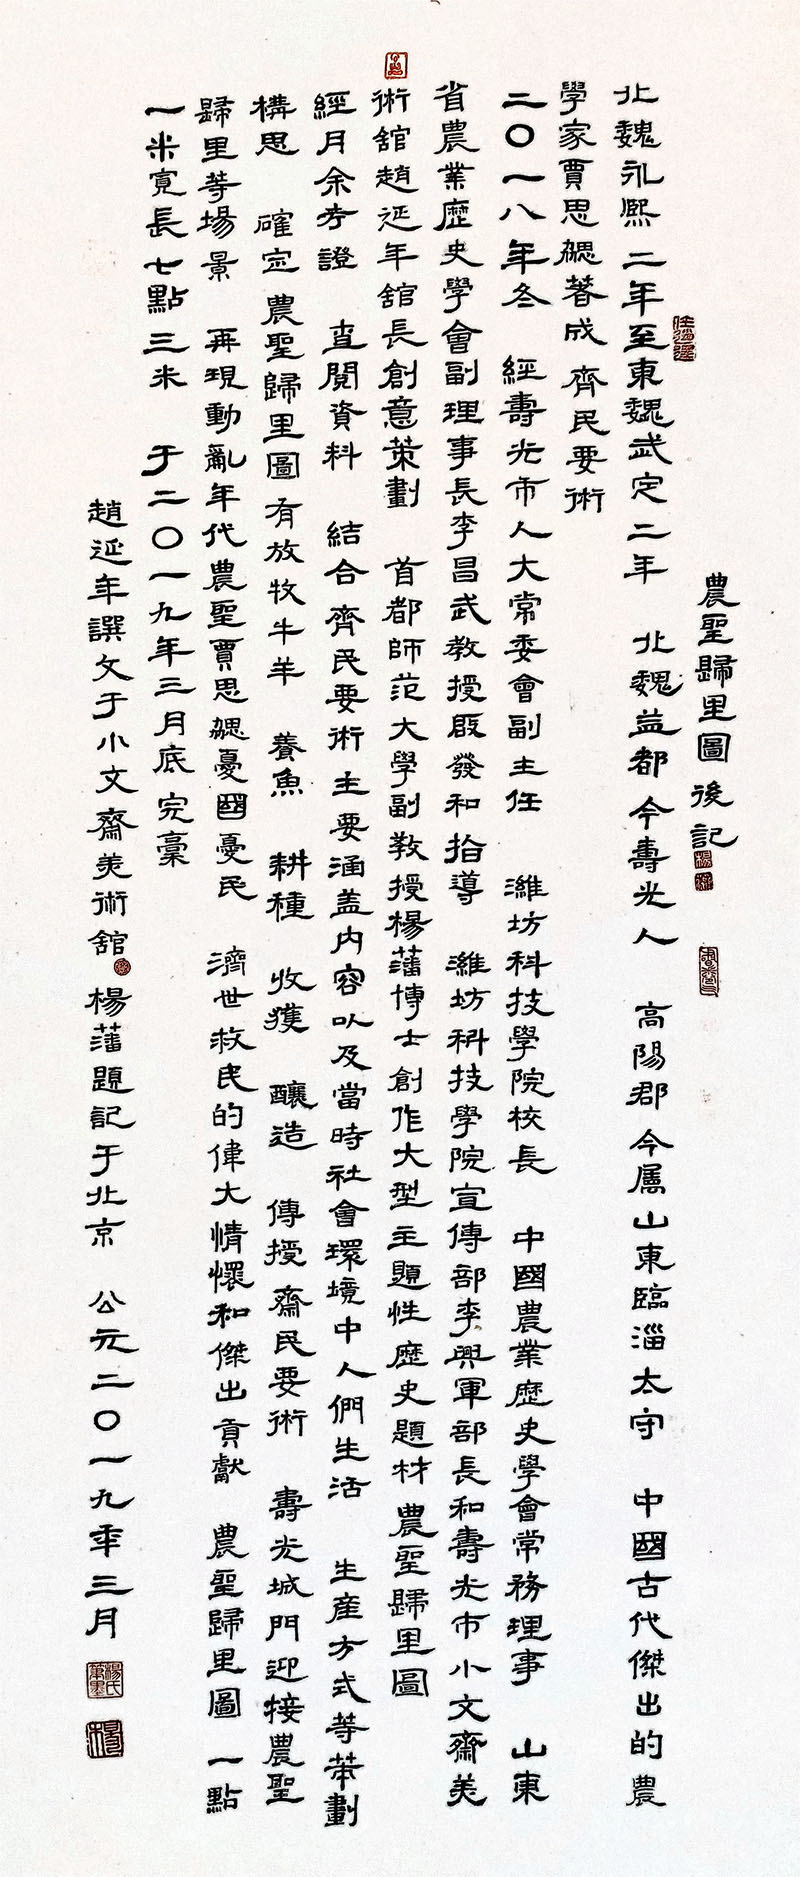 農聖歸里圖後記
北魏永熙二年至東魏武定二年 北魏益都今壽光人 高陽郡今屬山東臨淄太守 中國古代傑出的農
學家賈思勰著成齊民要術
二〇一八年冬 經壽光市人大常委會副主任 濰坊科技學院校長 中國農業歷史學會常務理事 山東
省農業歷史學會副理事長李昌武教授啟發和指導 濰坊科技學院宣傳部李興軍部長和壽光市小文齋美
術館趙延年館長創意策劃 首都師范大學副教授楊藩博士創作大型主題性歷史題材農聖歸里圖
經月余考證 查閱資料 結合齊民要術主要涵盖内容以及當時社會環境中人們生活 生産方式等策劃
構思 確定農聖歸里圖有放牧牛羊 養魚 耕種 收獲 釀造 傳授齋民要術 壽光城門迎接農聖
歸里等場景 再現動亂年代農聖賈思勰憂國憂民 濟世救民的偉大情懷和傑出貢獻 農聖歸里圖 一點
一米寬長七點三米 于二〇一九年三月底完稾
趙延年譔文于小文齋美術館 楊藩題記于北京 公元二〇一九年三月